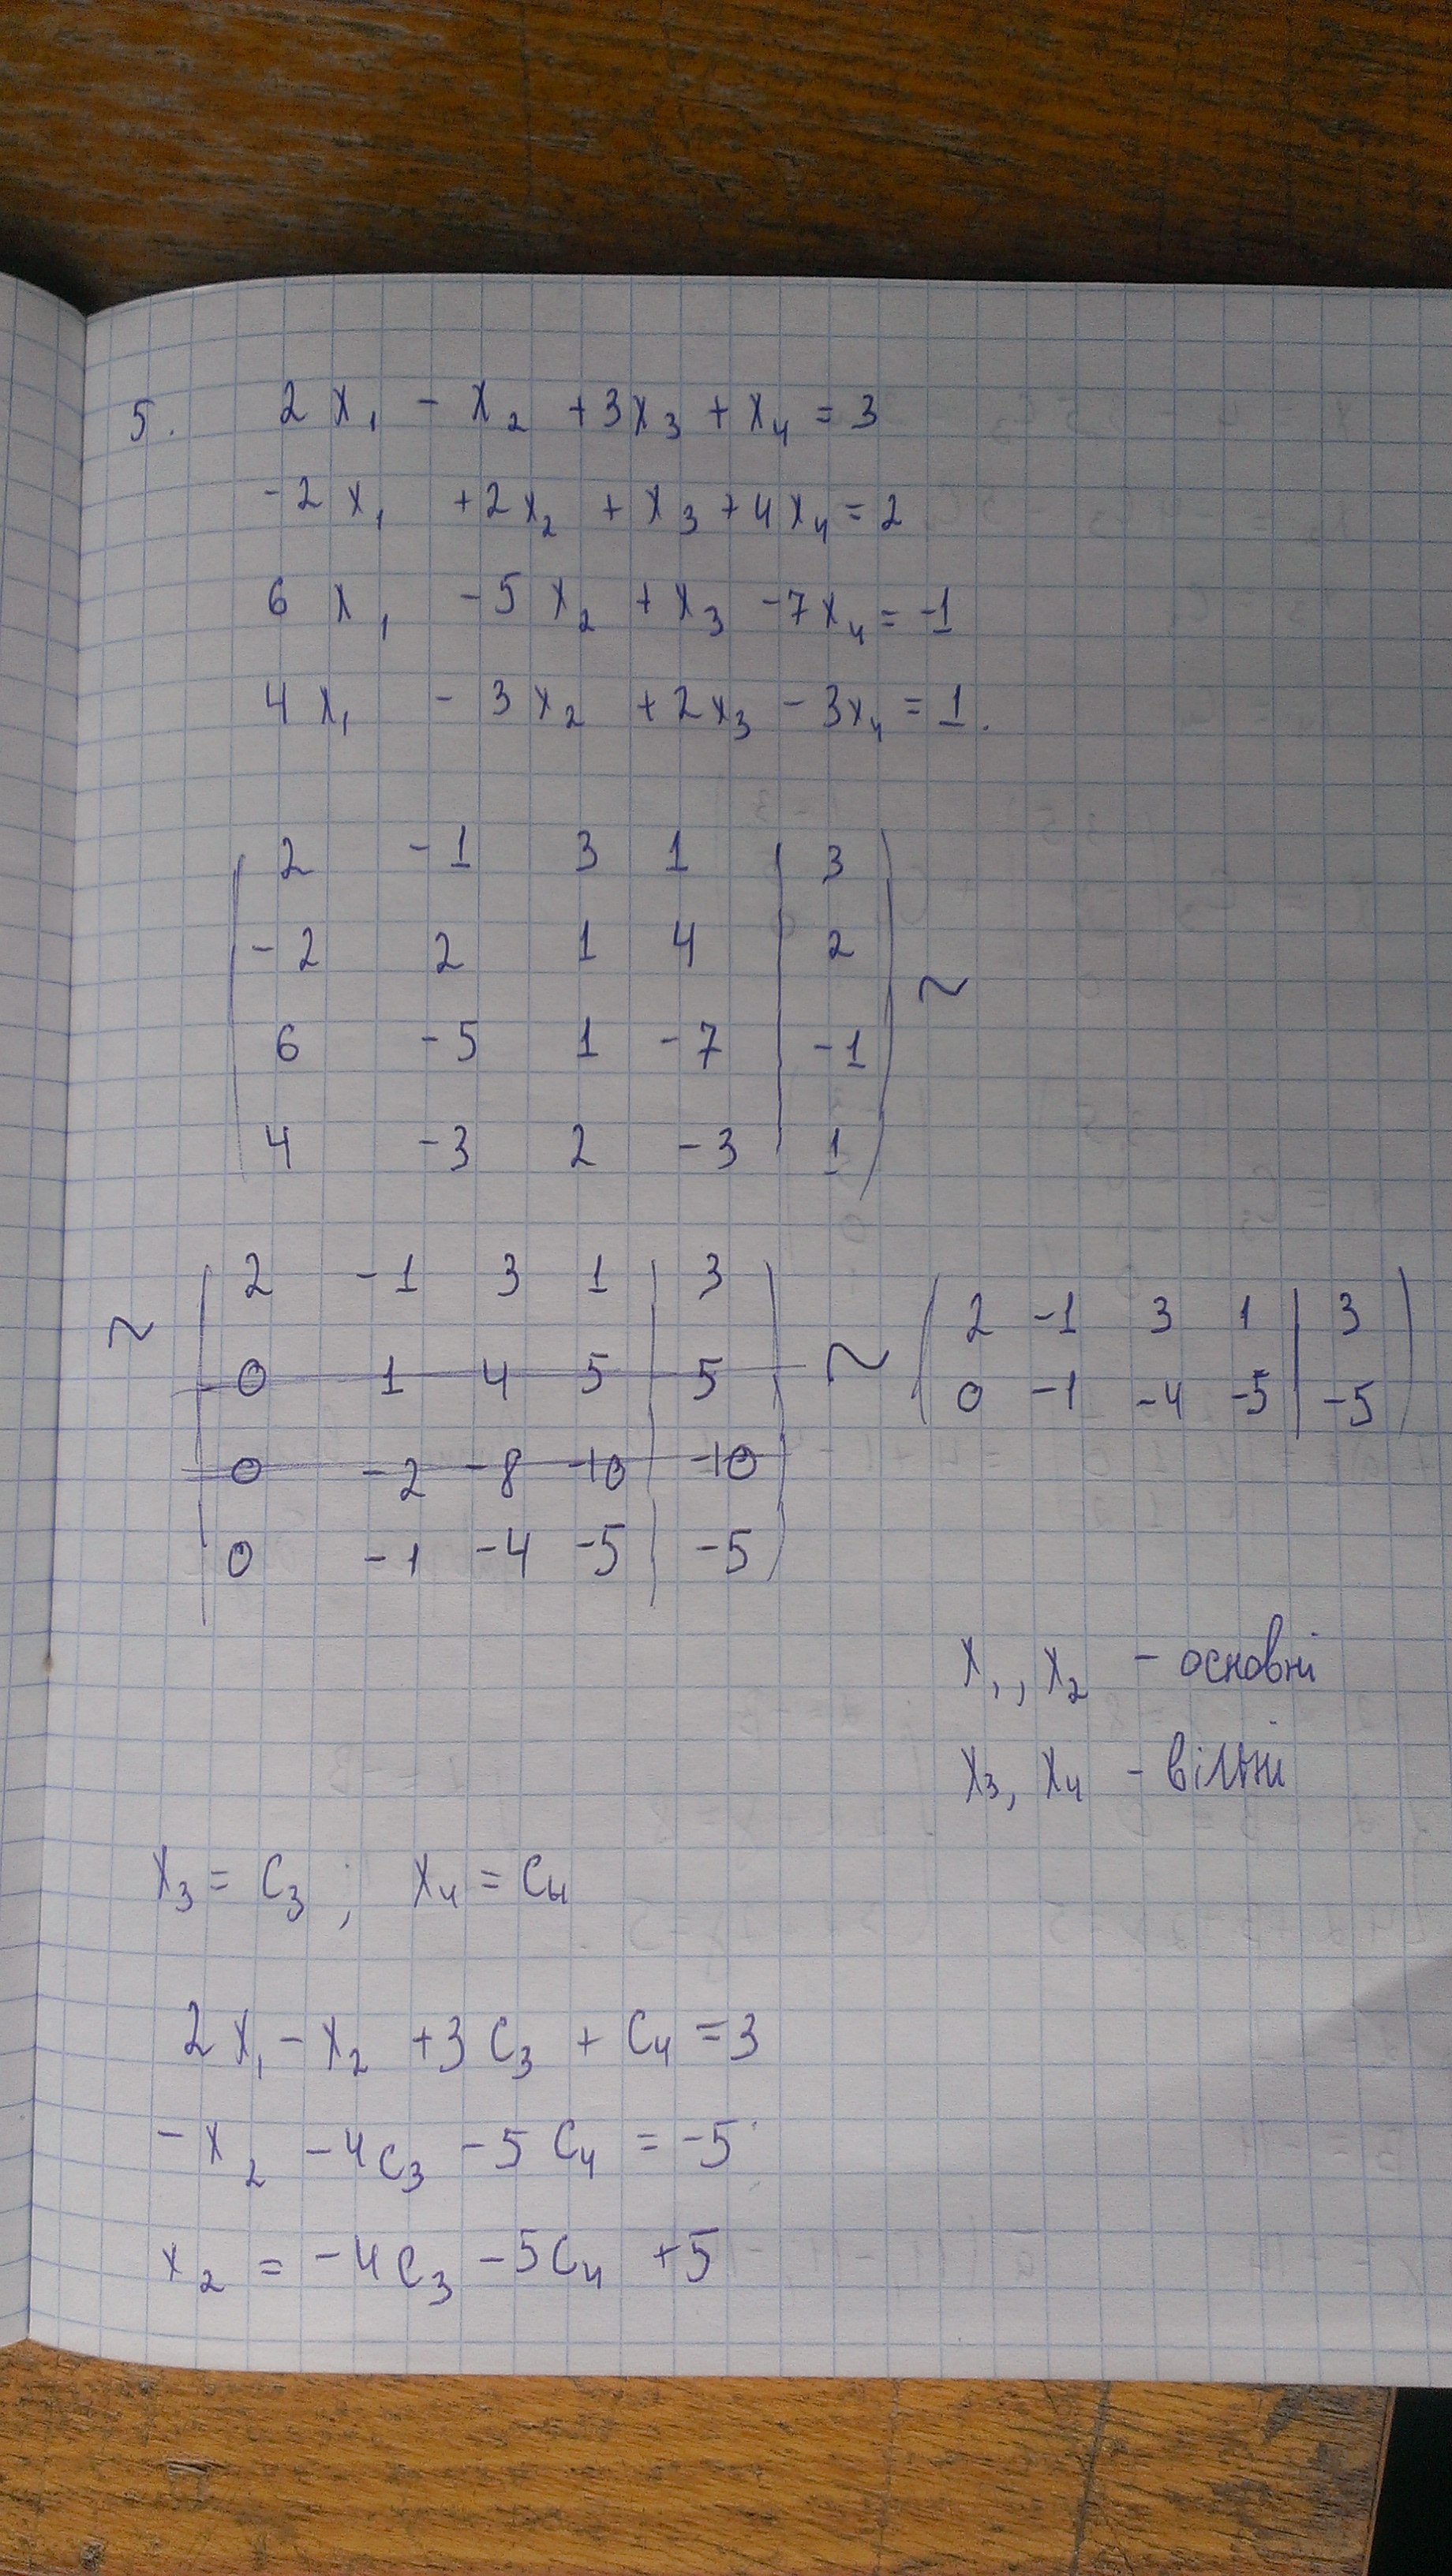 5. 2x₁ - x₂ + 3x₃ + x₄ = 3
-2x₁ + 2x₂ + x₃ + 4x₄ = 2
6x₁ - 5x₂ + x₃ - 7x₄ = -1
4x₁ - 3x₂ + 2x₃ - 3x₄ = 1.
2 -1 3 1 | 3
-2 2 1 4 | 2 ~
6 -5 1 -7 | -1
4 -3 2 -3 | 1
2 -1 3 1 | 3
~ 0 1 4 5 | 5 ~
0 -2 -8 -10 | -10
0 -1 -4 -5 | -5
2 -1 3 1 | 3
0 -1 -4 -5 | -5
x₁, x₂ - основні
x₃, x₄ - вільні
x₃ = C₃; x₄ = C₄
2x₁ - x₂ + 3C₃ + C₄ = 3
-x₂ - 4C₃ - 5C₄ = -5
x₂ = -4C₃ - 5C₄ + 5